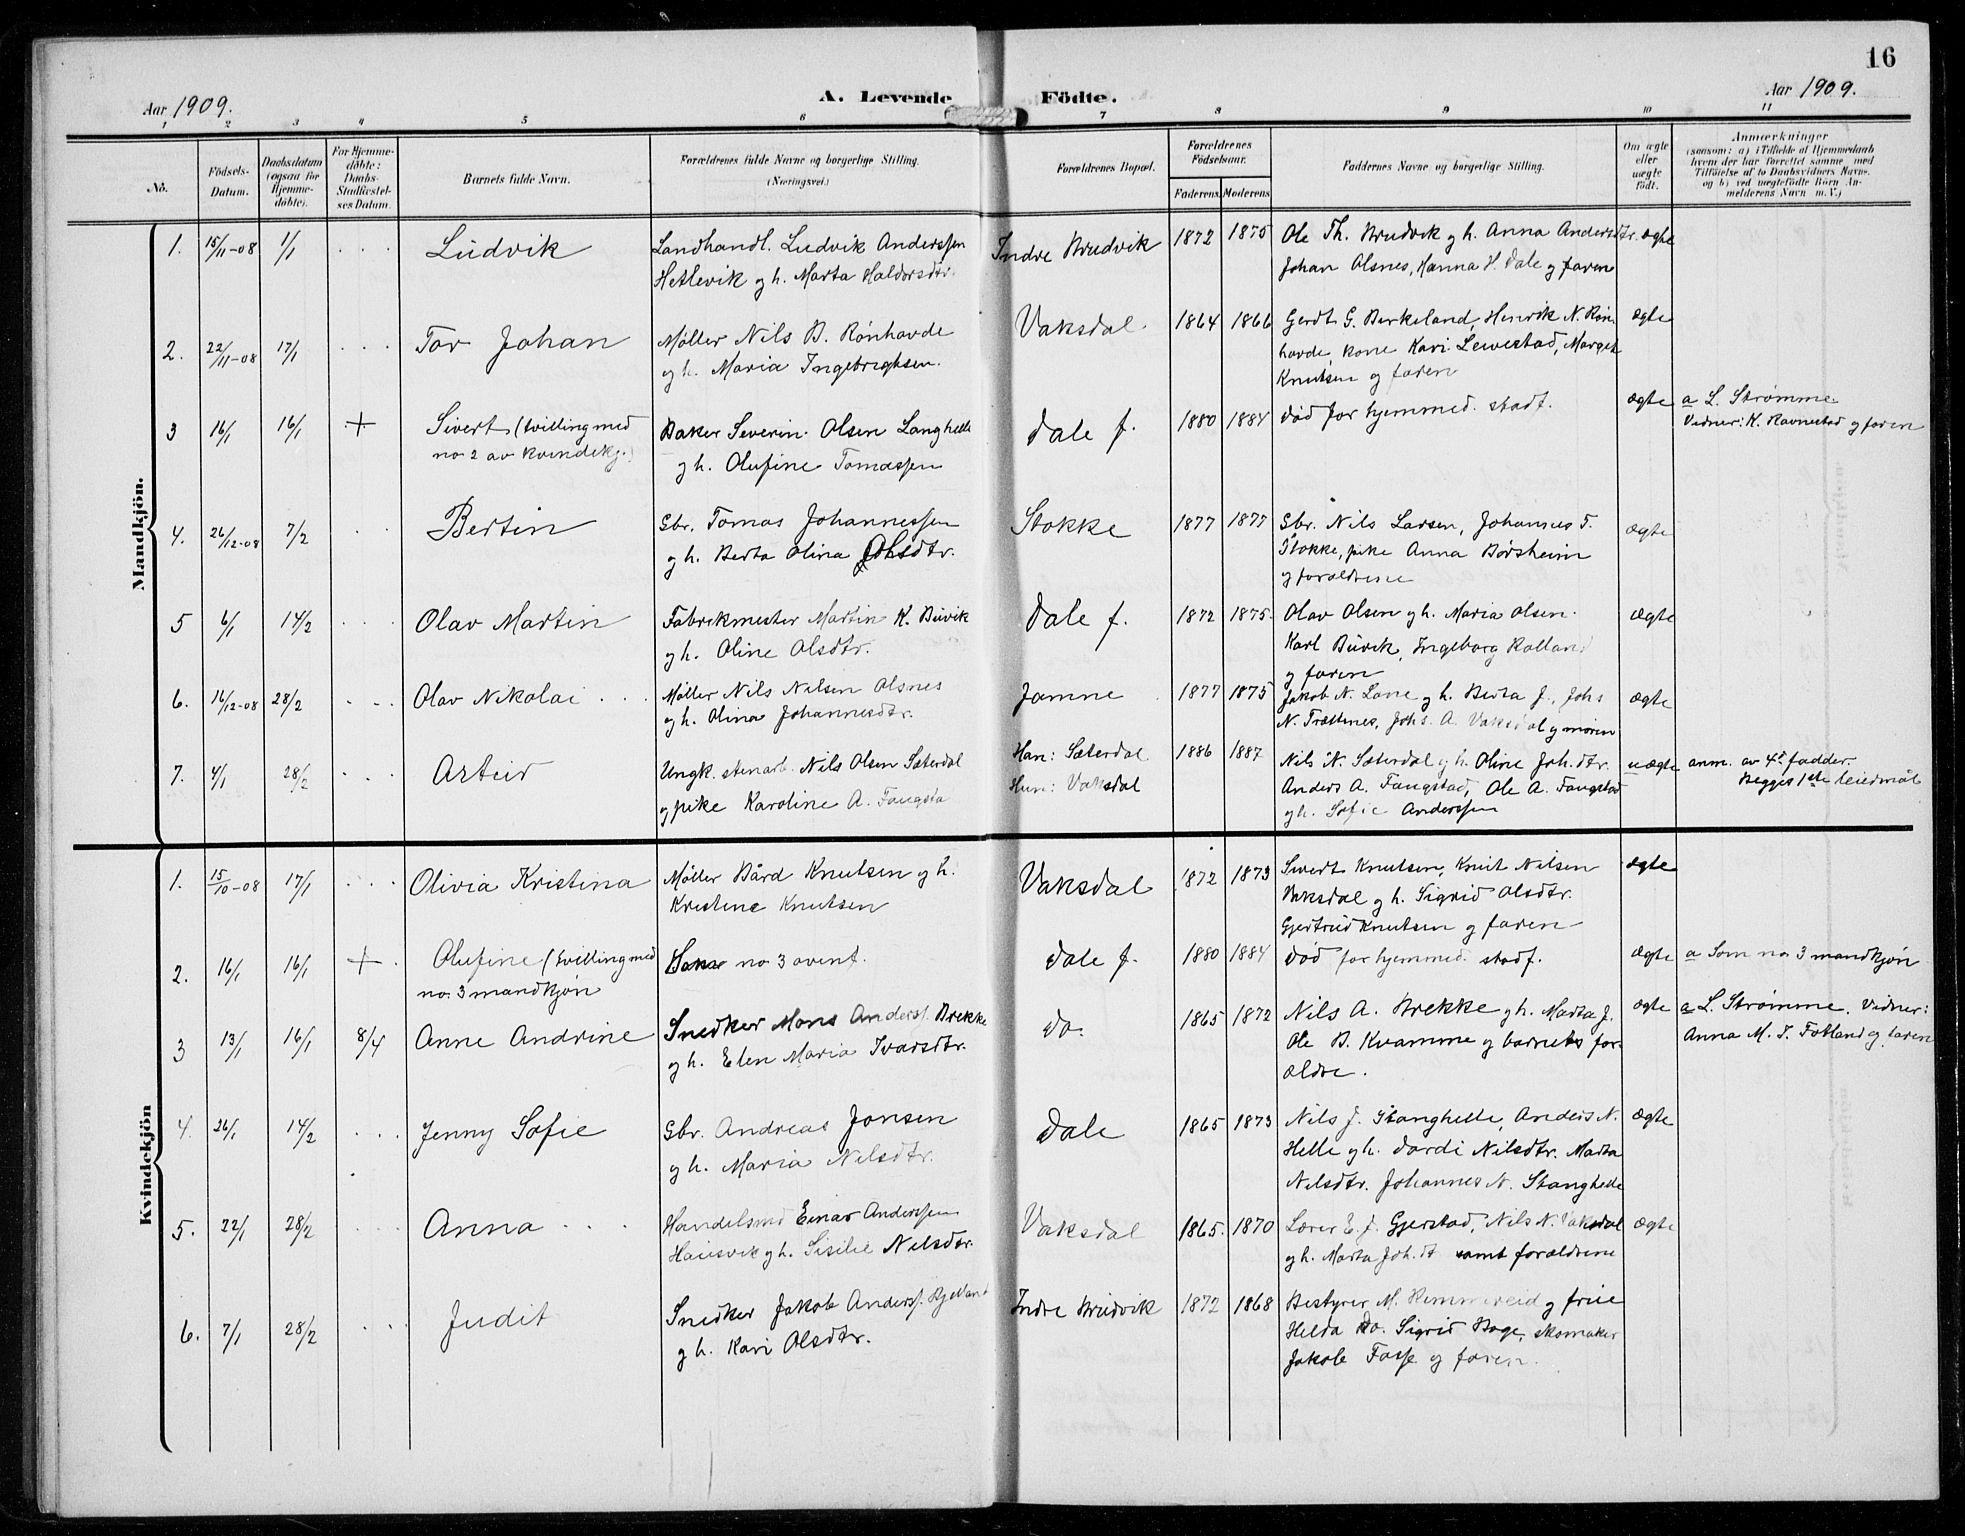 16
Aar 1909.
A. Levende Födte.
Aar 1909.
1 2 3 4 5 6 7 8 9 10 11
No.
Födsels-Datum.
Daabsdatum (ogsaa for Hjemme-döbte).
For Hjemme-döbte: Daabs-Stadfæstel-ses Datum.
Barnets fulde Navn.
Forældrenes fulde Navne og borgerlige Stilling.
(Næringsvei.)
Forældrenes Bopæl.
Forældrenes Födselsaar.
Faderens. Moderens.
Faddernes Navne og borgerlige Stilling.
Om ægte eller uægte født.
Anmærkninger
(saasom: a) i Tilfælde af Hjemmedaab
hvem der har forrettet samme, med
Tilföielse af to Daabsvidners Navne,
og b) ved uægtefödte Börn An-
melderens Navn m. V.)
Mandkjön.
1. 15/11-08 1/1 . . . Ludvik Landhandl. Ludvik Anderssen Indre Bruvik 1872 1875 Ole Th. Bruvik og h. Anna Andersdtr. ægte
Hetlevik og h. Marta Haldorsdtr. Johan Olsnes, Hanna H. Dale og faren
2. 22/11-08 17/1 . . . Tor Johan Møller Nils B. Rønhovde Vaksdal. 1864 1866 Gerdt G. Birkeland, Henrik N. Røn- ægte
og h. Maria Ingebrigtsen. hovde, kone Kari Leivestad, Margit
Knutsen og faren
3 16/1 16/1 + Sivert (tvilling med Baker Severin Olsen Langhelle Dale f. 1880 1884 død før hjemmed. stadf. ægte a L. Strømme.
no 2 av kvindekj.) og h. Olufine Tomassen Vidner: K. Ravnestad og faren
4. 26/12-08 7/2 . . Bertin Gbr. Tomas Johannessen Stokke 1877 1877 Gbr. Nils Larsen, Johannes T. ægte
og h. Berta Olina Olsdtr. Stokke, pike Anna Børsheim
og forældrene
5 6/1 14/2 . . . Olav Martin Fabrikmester Martin K. Buvik Dale f. 1872 1875. Olav Olsen og h. Maria Olsen. ægte
og h. Oline Olsdtr. Karl Buvik, Ingeborg Rolland
og faren
6. 16/12-08 28/2 . . . Olav Nikolai . . Møller Nils Nilsen Olsnes Jamne 1877 1875 Jakob N. Lone og h. Berta J., Johs ægte
og h. Olina Johannesdtr. N. Trættenes, Johs. A. Vaksdal og moren
7. 4/1 28/2 . . . Asteid Ungk. stenarb. Nils Olsen Sæterdal Han: Sæterdal 1886 1887 Nils N. Sæterdal og h. Oline Joh.dtr. uægte anm. av 4de fadder.
og pike Karoline A. Fangsta Hun: Vaksdal Anders A. Fangstad, Ole A. Fangstad Begges 1ste leiermål
og h. Sofie Anderssen
Kvindekjön
1. 15/10-08 17/1 . . . Olivia Kristina Møller Bård Knutsen og h. Vaksdal 1872 1873 Sivert Knutsen, Knut Nilsen ægte
Kristine Knutsen Vaksdal og h. Sigrid Olsdtr.
Gjertrud Knutsen og faren
2. 16/1 16/1 + . Olufine (tvilling med Som no 3 ovenf. Dale f. 1880 1884 død før hjemmed. stadf. ægte a Som no. 3 mandkjøn
no. 3 mandkjøn
3 13/1 16/1 8/4 Anne Andrine Snedker Mons Anderss. Brekke do. 1865 1872 Nils A. Brekke og h. Marta J. ægte a L. Strømme. Vidner:
og h. Elen Maria Ivarsdtr. Ole B. Kvamme og barnets for- Anna M. T. Fotland og faren
ældre.
4. 26/1 14/2 . . . Jenny Sofie Gbr. Andreas Jonsen Dale 1865 1873 Nils J. Stanghelle, Anders N. ægte
og h. Maria Nilsdtr. Helle og h. Dordi Nilsdtr. Marta
Nilsdtr. Johannes N. Stanghelle
5. 22/1 28/2 . . . Anna . . . Handelsmd Einar Anderssen Vaksdal 1865. 1870 Lærer E. J. Gjerstad, Nils N. Vaksdal ægte
Hausvik og h. Sisilie Nilsdtr. og h. Marta Joh.dt samt forældrene
6. 7/1 28/2 . . . Judit Snedker Jakob Anderss. Bjelland Indre Bruvik 1872 1868 Bestyrer M. Rimmereid og frue
og h. Kari Olsdtr. Helda do. Sigrid Hoge, skomaker
Jakob Fosse og faren.